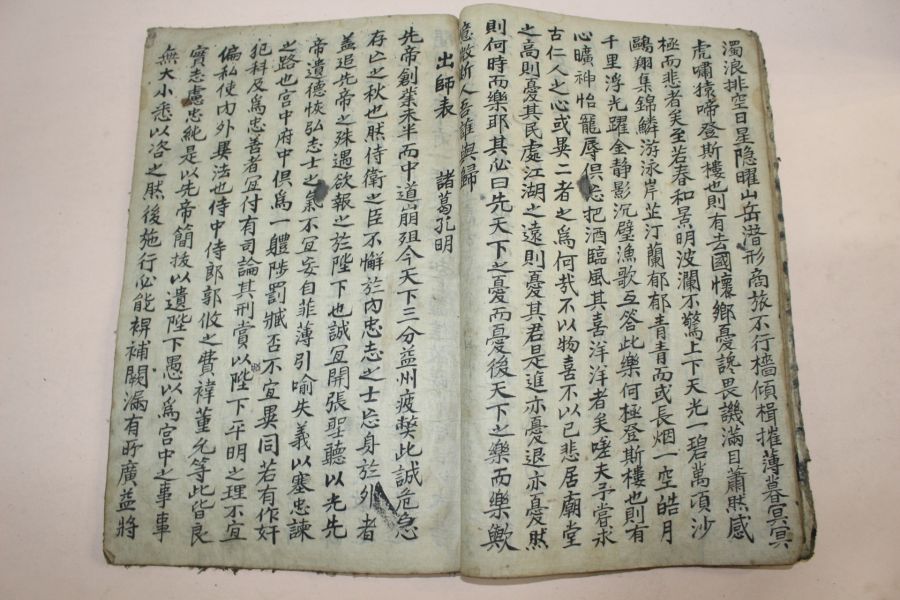 濁浪排空日星隐曜山岳潜形商旅不行檣傾楫摧薄暮冥冥
虎嘯猿啼登斯樓也則有去國懷鄉憂讒畏譏滿目蕭然感
極而悲者矣至若春和景明波瀾不驚上下天光一碧萬頃沙
鷗翔集錦鱗游泳岸芷汀蘭郁郁青青而或長烟一空皓月
千里浮光躍金静影沉璧漁歌互答此樂何極登斯樓也則有
心曠神怡寵辱俱忘把酒臨風其喜洋洋者矣嗟夫予嘗求
古仁人之心或異二者之爲何哉不以物喜不以已悲居廟堂
之高則憂其民處江湖之遠則憂其君是進亦憂退亦憂然
則何時而樂耶其必曰先天下之憂而憂後天下之樂而樂歟
噫微斯人吾誰與歸
出師表 諸葛孔明
先帝創業未半而中道崩殂今天下三分益州疲獘此誠危急
存亡之秋也然侍衛之臣不懈於內忠志之士忘身於外者
盖追先帝之殊遇欲報之於陛下也誠冝開張聖聽以光先
帝遺德恢弘志士之氣不冝妄自菲薄引喻失義以塞忠諫
之路也宮中府中俱爲一軆陟罰臧否不宜異同若有作奸
犯科及爲忠善者冝付有司論其刑賞以昭陛下平明之理不宜
偏私使內外異法也侍中侍郎郭攸之費褘董允等此皆良
實志慮忠純是以先帝簡拔以遺陛下愚以爲宮中之事事
無大小悉以咨之然後施行必能裨補闕漏有所廣益將